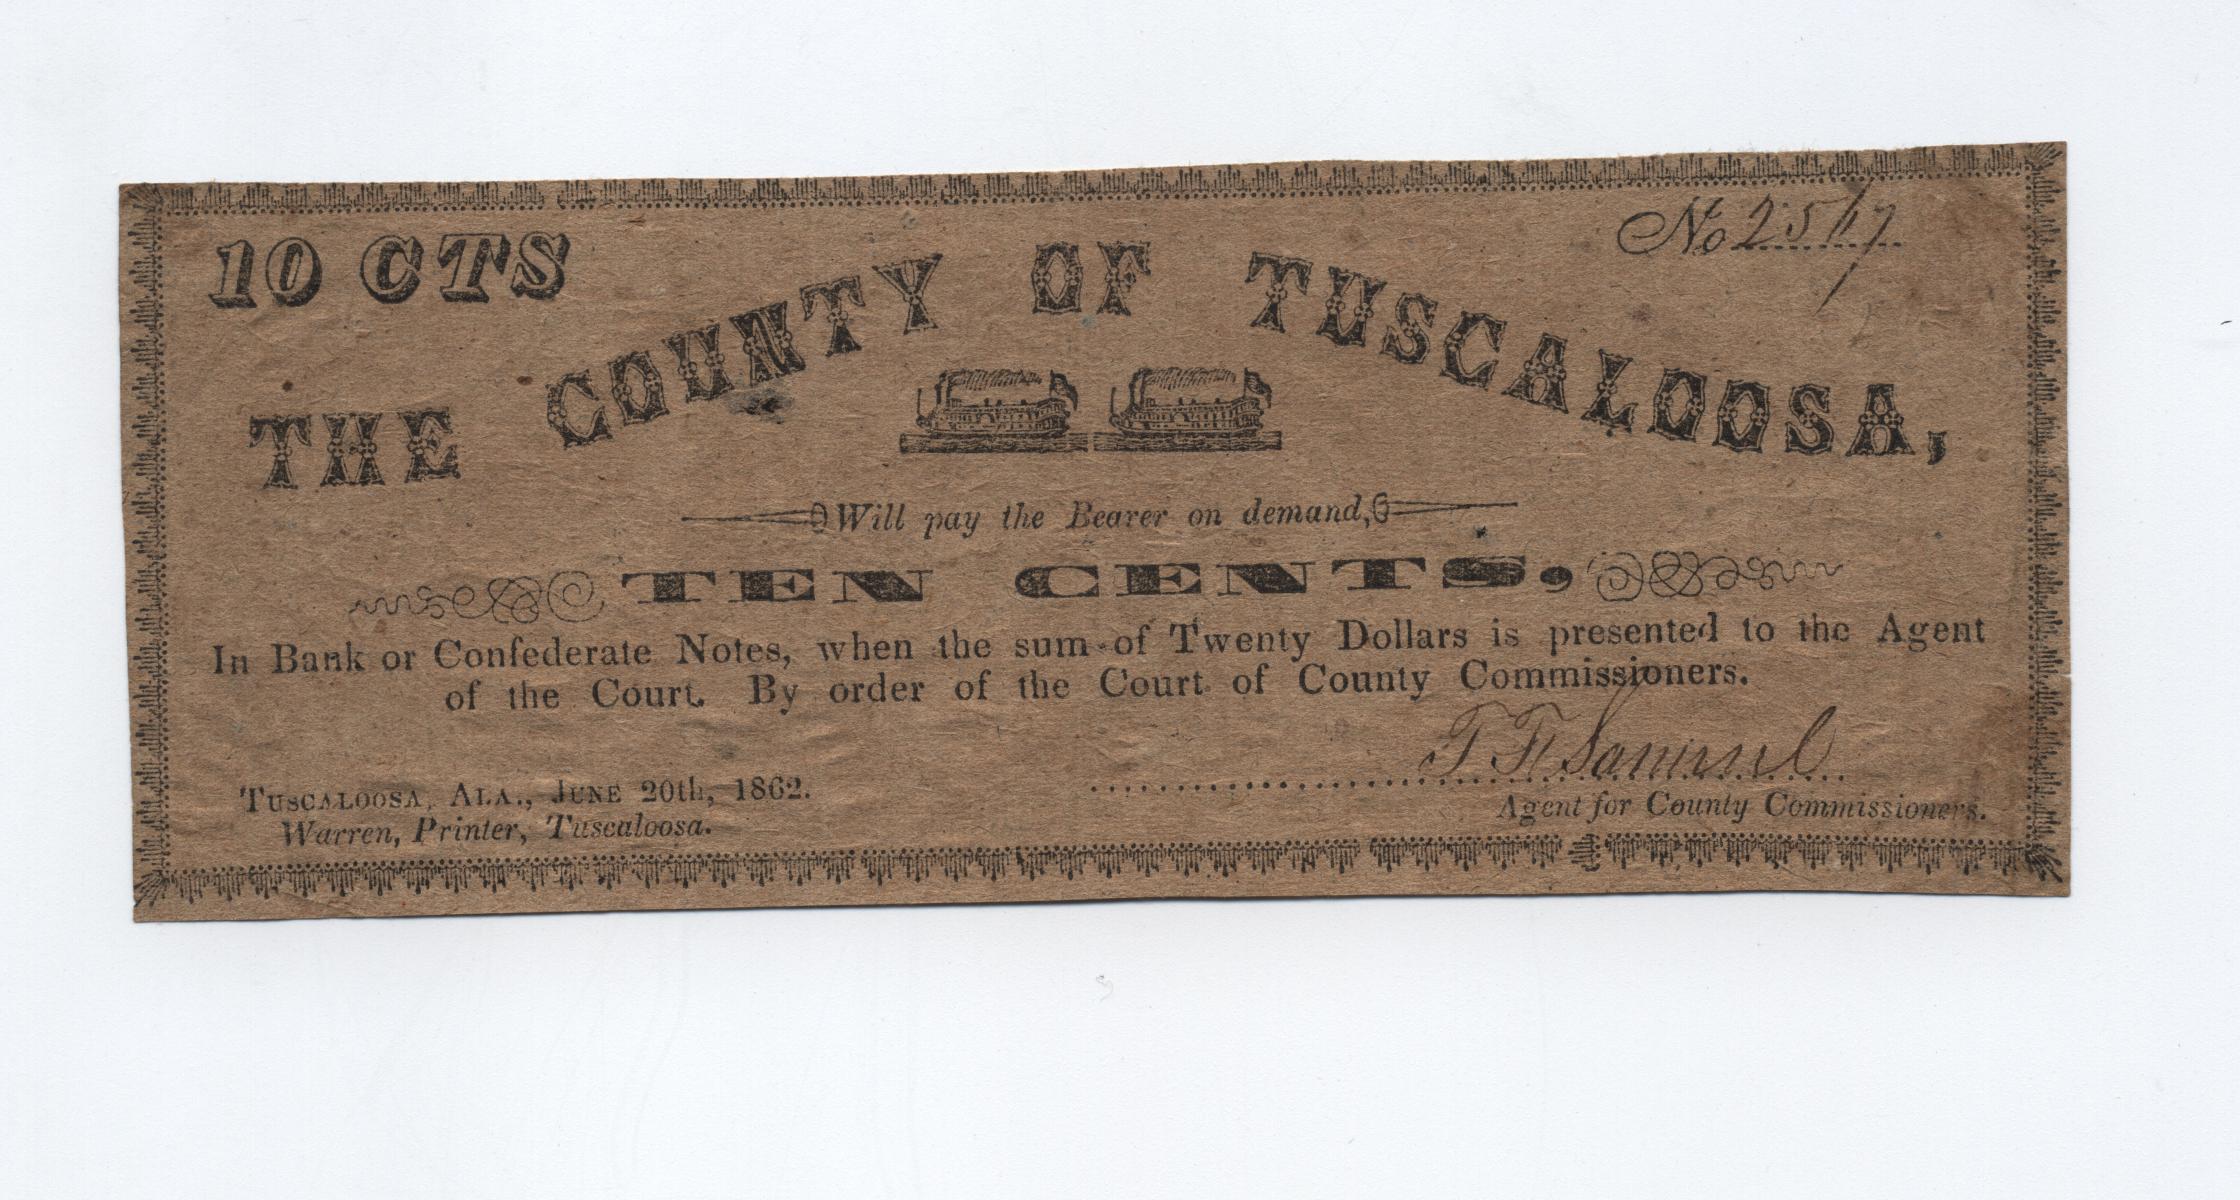 10 CTS
No 2517
THE COUNTY OF TUSCALOOSA,
Will pay the Bearer on demand,
TEN CENTS,
In Bank or Confederate Notes, when the sum of Twenty Dollars is presented to the Agent
of the Court. By order of the Court of County Commissioners.
T F Samuel
TUSCALOOSA, ALA., JUNE 20th, 1862.
Agent for County Commissioners.
Warren, Printer, Tuscaloosa.